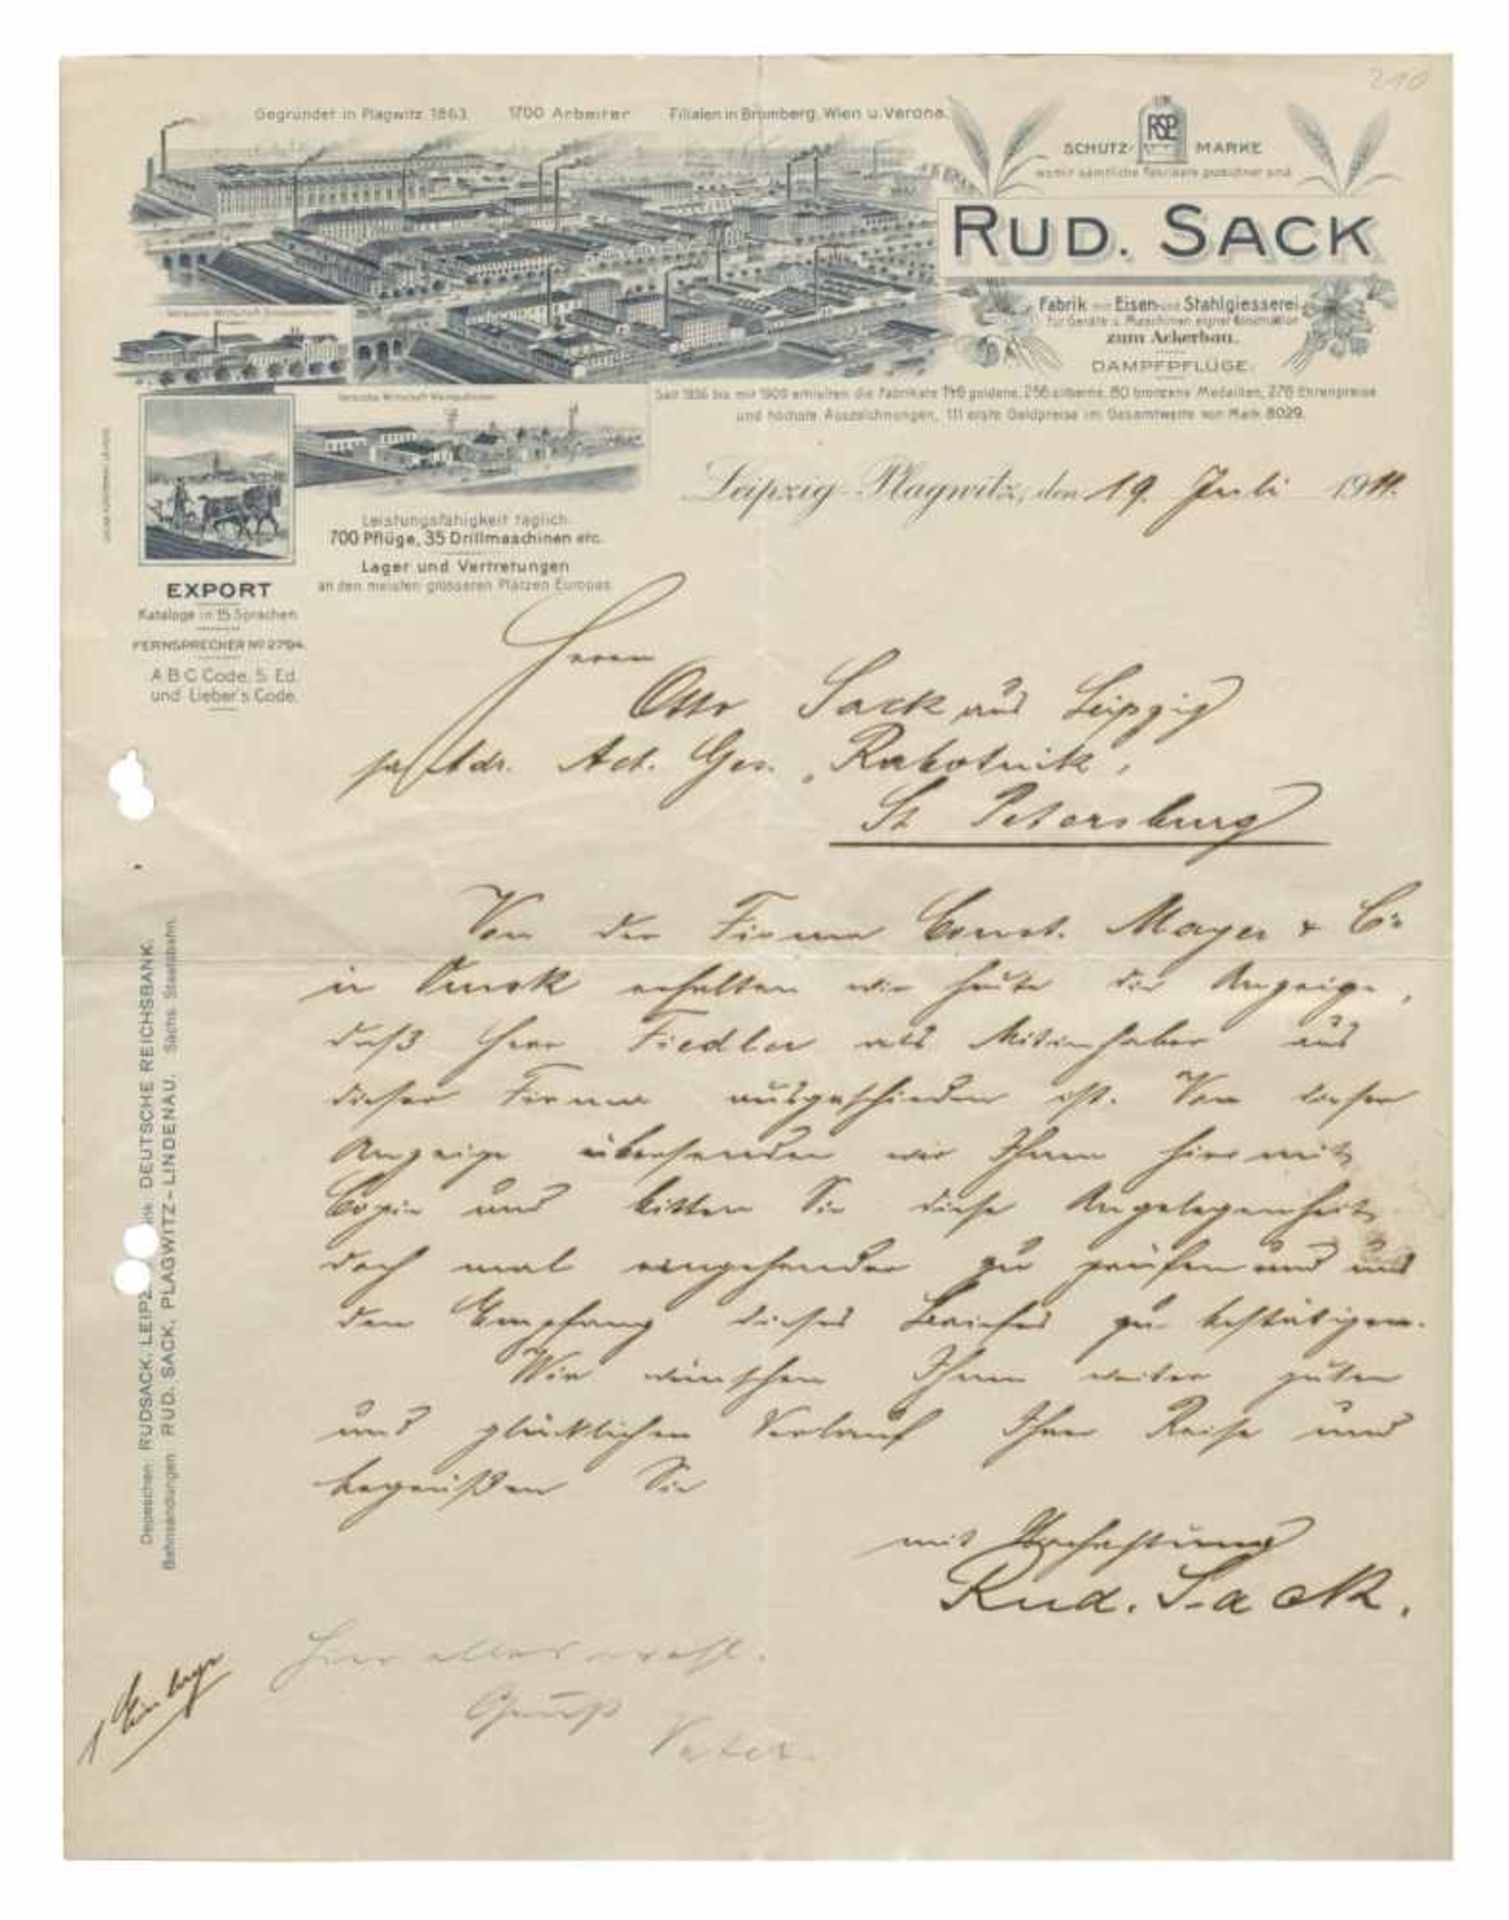 210
Gegründet in Plagwitz 1863. 1700 Arbeiter Filialen in Bromberg, Wien u. Verona.
RSP
SCHUTZ-MARKE
womit sämtliche Fabrikate gezeichnet sind
RUD. SACK
Fabrik mit Eisen- und Stahlgiesserei
für Geräte u. Maschinen eigner Konstruktion
zum Ackerbau.
DAMPFPFLÜGE.
Seit 1836 bis mit 1909 erhielten die Fabrikate 146 goldene, 256 silberne, 80 bronzene Medaillen, 278 Ehrenpreise
und höchste Auszeichnungen, 111 erste Geldpreise im Gesamtwerte von Mark 8029.
Leipzig-Plagwitz, den 19. Juli 1911.
Leistungsfähigkeit täglich
700 Pflüge, 35 Drillmaschinen etc.
Lager und Vertretungen
an den meisten grösseren Plätzen Europas
EXPORT
Kataloge in 15 Sprachen
FERNSPRECHER No 2794.
A B C Code, 5. Ed.
und Lieber's Code.
Herrn
Otto Sack aus Leipzig
pr. Adr. Act. Ges. „Rabotnik"
St. Petersburg
Von der Firma Const. Mayer & Co
in Omsk erhalten wir heute die Anzeige,
daß Herr Fiedler als Mitinhaber aus
dieser Firma ausgeschieden ist. Von dieser
Anzeige übersenden wir Ihnen hiermit
Copie und bitten Sie diese Angelegenheit
doch mal eingehender zu prüfen und uns
den Empfang dieses Briefes zu bestätigen.
Wir wünschen Ihnen weiter guten
und glücklichen Verlauf Ihrer Reise und
begrüßen Sie
mit Hochachtung
Rud. Sack.
Hier alles wohl.
Gruß
Vater.
1 Einlage
Depeschen: RUDSACK, LEIPZ DEUTSCHE REICHSBANK.
Bahnsendungen: RUD. SACK, PLAGWITZ-LINDENAU. Sächs. Staatsbahn.